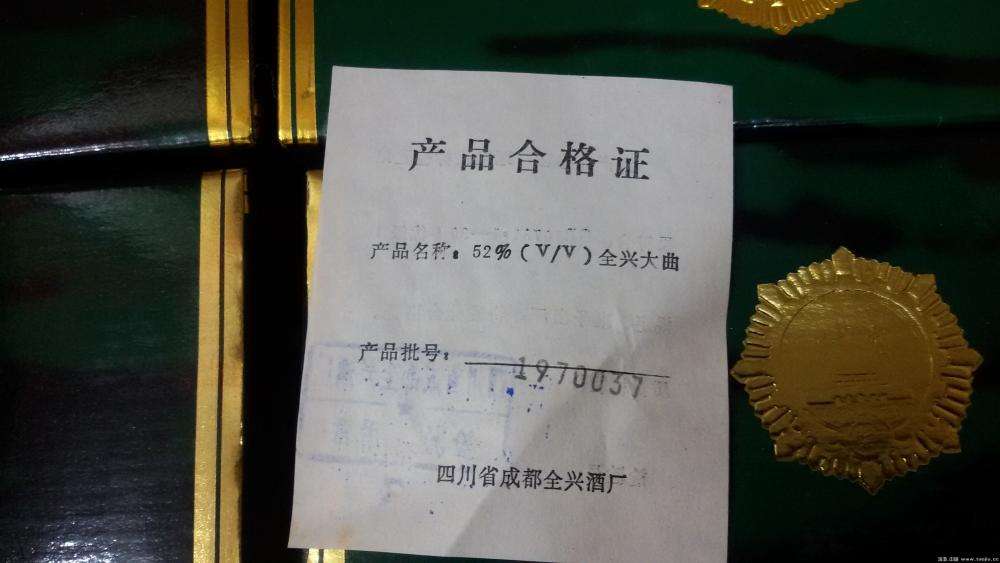 产品合格证
产品名称：52%(V/V)全兴大曲
产品批号：1970037
四川省成都全兴酒厂